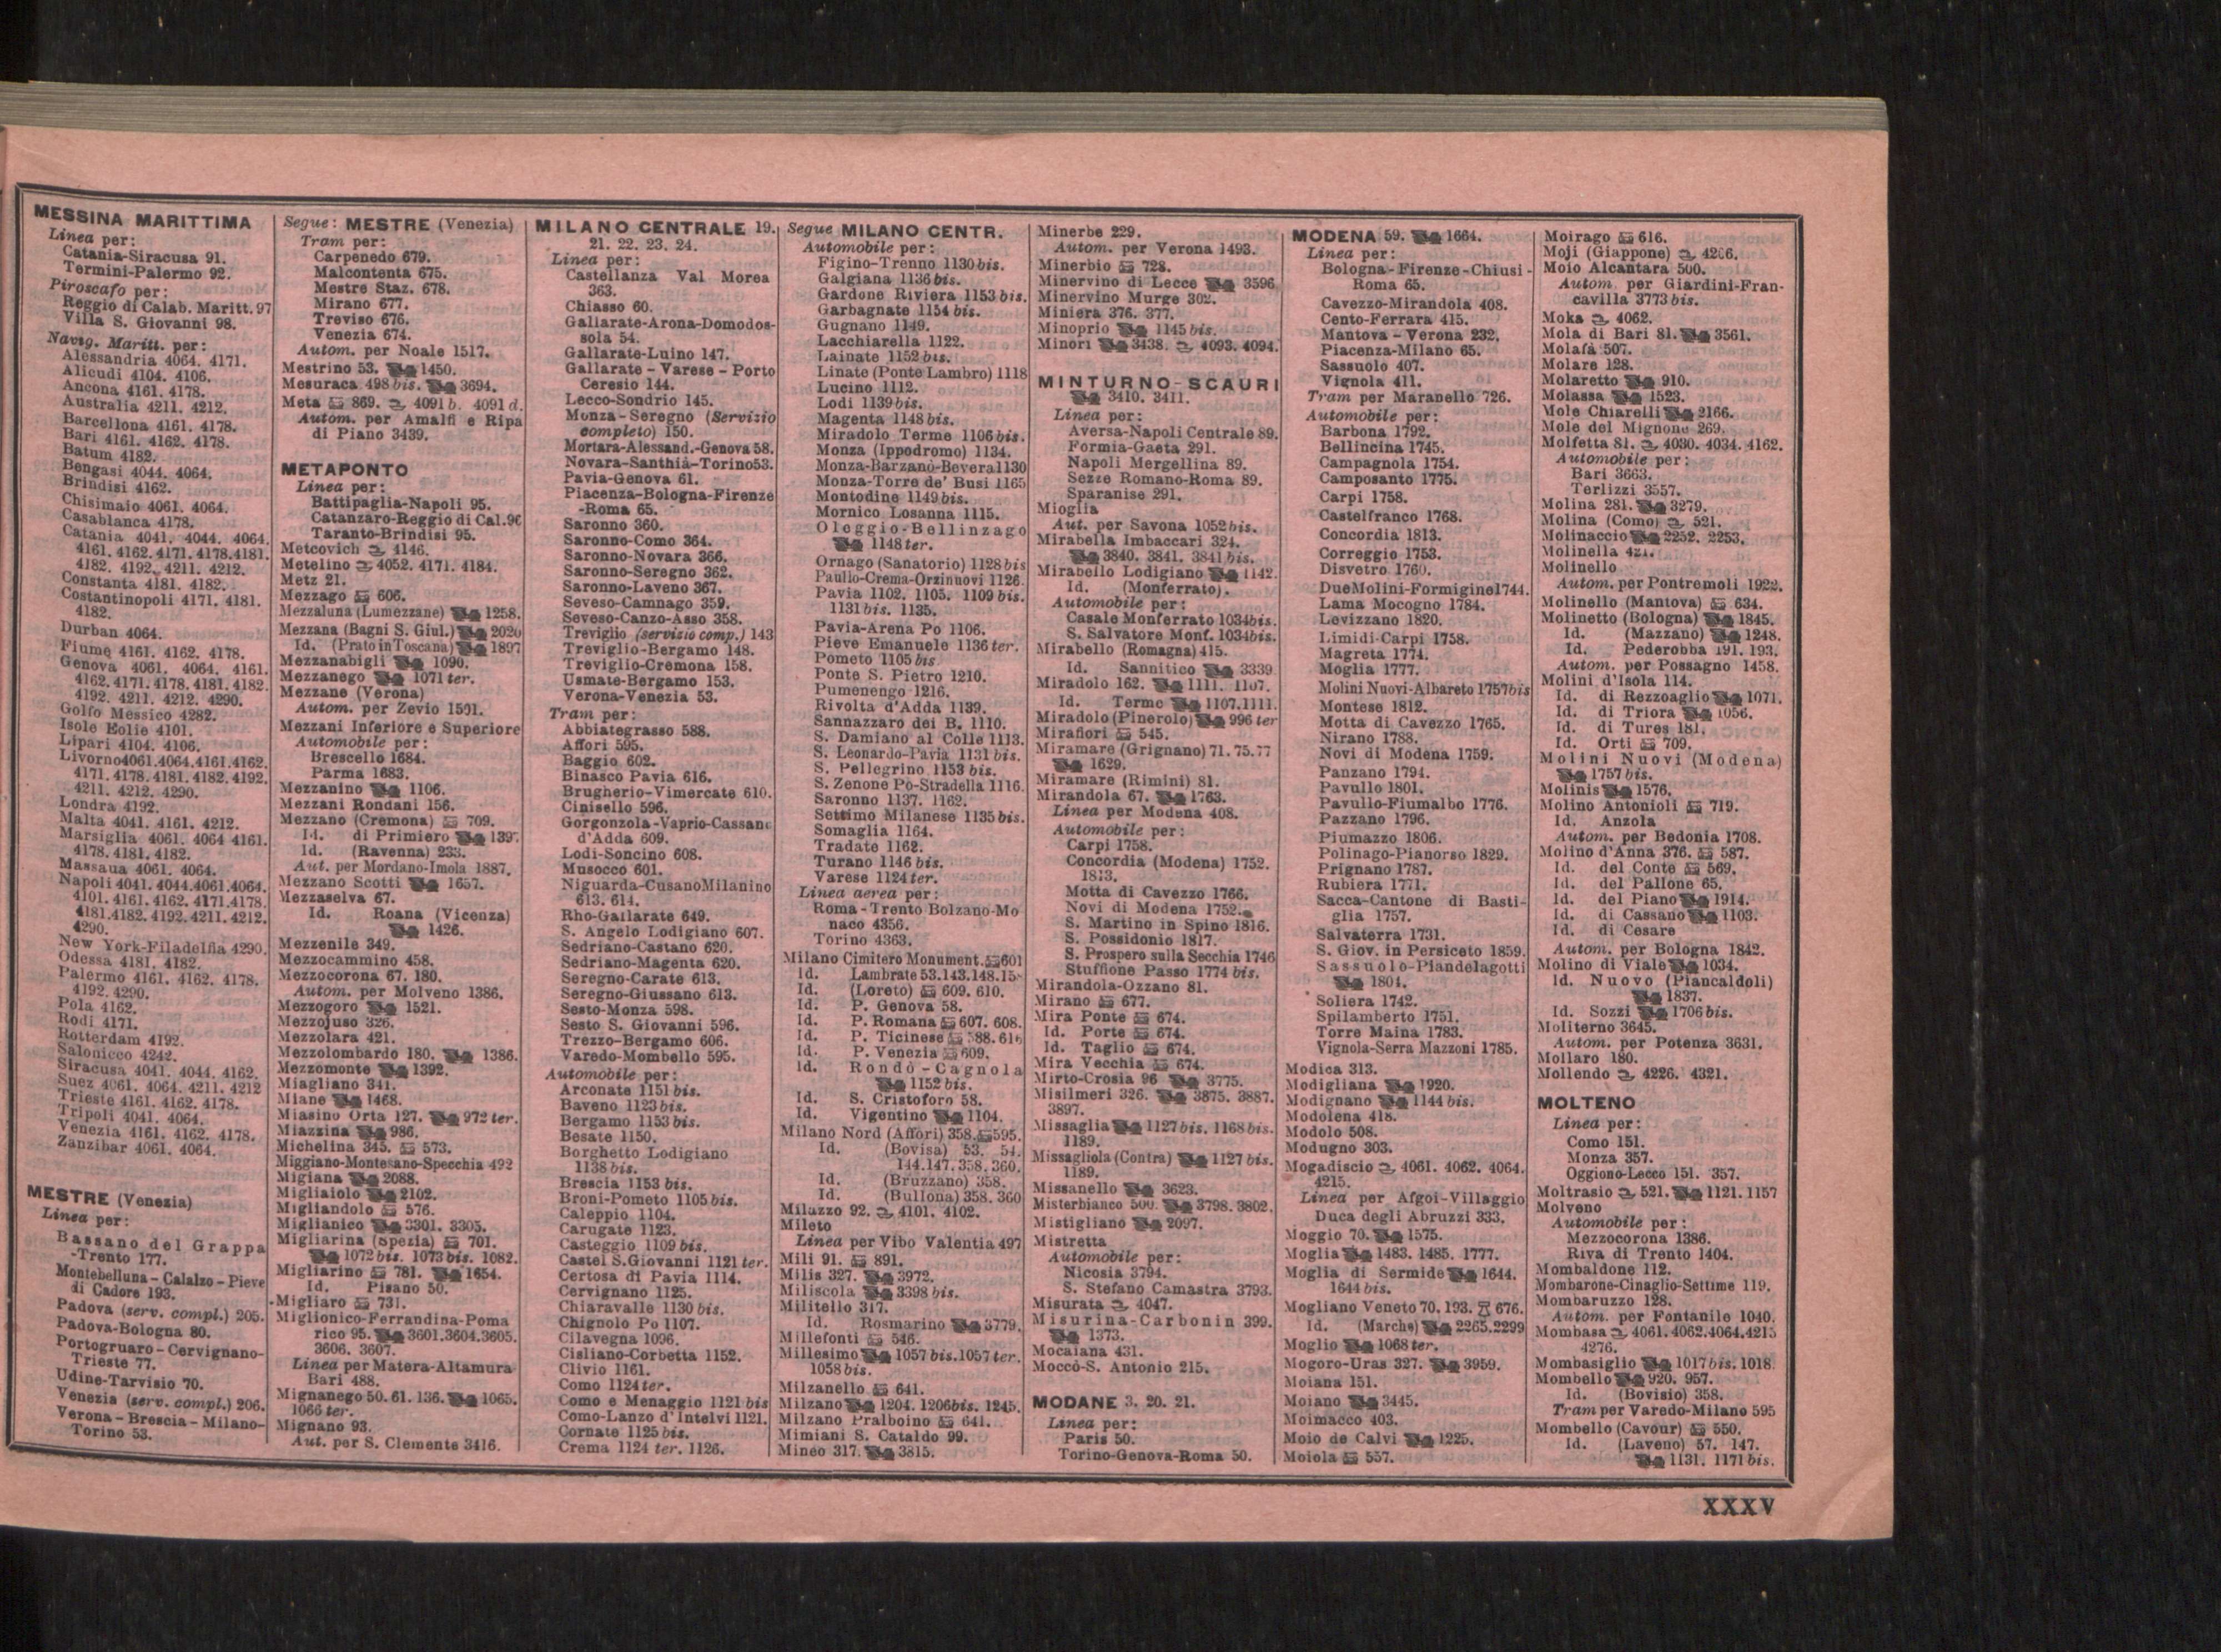 MESSINA MARITTIMA
Linea per:
Catania-Siracusa 91.
Termini-Palermo 92.
Piroscafo per:
Reggio di Calab. Maritt. 97
Villa S. Giovanni 98.
Navig. Maritt. per:
Alessandria 4064. 4171.
Alicudi 4104. 4106.
Ancona 4161. 4178.
Australia 4211. 4212.
Barcellona 4161. 4178.
Bari 4161. 4162. 4178.
Batum 4182.
Bengasi 4044. 4064.
Brindisi 4162.
Chisimaio 4061. 4064.
Casablanca 4178.
Catania 4041. 4044. 4064.
4161. 4162. 4171. 4178. 4181.
4182. 4192. 4211. 4212.
Constanta 4181. 4182.
Costantinopoli 4171. 4181.
4182.
Durban 4064.
Fiume 4161. 4162. 4178.
Genova 4061. 4064. 4161.
4162. 4171. 4178. 4181. 4182.
4192. 4211. 4212. 4290.
Golfo Messico 4282.
Isole Eolie 4101.
Lipari 4104. 4106.
Livorno 4061. 4064. 4161. 4162.
4171. 4178. 4181. 4182. 4192.
4211. 4212. 4290.
Londra 4192.
Malta 4041. 4161. 4212.
Marsiglia 4061. 4064 4161.
4178. 4181. 4182.
Massaua 4061. 4064.
Napoli 4041. 4044. 4061. 4064.
4101. 4161. 4162. 4171. 4178.
4181. 4182. 4192. 4211. 4212.
4290.
New York-Filadelfia 4290.
Odessa 4181. 4182.
Palermo 4161. 4162. 4178.
4192. 4290.
Pola 4162.
Rodi 4171.
Rotterdam 4192.
Salonicco 4242.
Siracusa 4041. 4044. 4162.
Suez 4061. 4064. 4211. 4212
Trieste 4161. 4162. 4178.
Tripoli 4041. 4064.
Venezia 4161. 4162. 4178.
Zanzibar 4061. 4064.
MESTRE (Venezia)
Linea per:
Bassano del Grappa
-Trento 177.
Montebelluna - Calalzo - Pieve
di Cadore 193.
Padova (serv. compl.) 205.
Padova-Bologna 80.
Portogruaro - Cervignano-
Trieste 77.
Udine-Tarvisio 70.
Venezia (serv. compl.) 206.
Verona - Brescia - Milano-
Torino 53.
Segue: MESTRE (Venezia)
Tram per:
Carpenedo 679.
Malcontenta 675.
Mestre Staz. 678.
Mirano 677.
Treviso 676.
Venezia 674.
Autom. per Noale 1517.
Mestrino 53. 1450.
Mesuraca 498 bis. 3694.
Meta 869. 4091 b. 4091 d.
Autom. per Amalfi e Ripa
di Piano 3439.
METAPONTO
Linea per:
Battipaglia-Napoli 95.
Catanzaro-Reggio di Cal.
Taranto-Brindisi 95.
Metcovich 4146.
Metelino 4052. 4171. 4184.
Metz 21.
Mezzago 606.
Mezzaluna (Lumezzane) 1258.
Mezzana (Bagni S. Giul.) 2020
Id. (Prato in Toscana) 1897
Mezzanabigli 1090.
Mezzanego 1071 ter.
Mezzane (Verona)
Autom. per Zevio 1501.
Mezzani Inferiore e Superiore
Automobile per:
Brescello 1684.
Parma 1683.
Mezzanino 1106.
Mezzani Rondani 156.
Mezzano (Cremona) 709.
Id. di Primiero
Id. (Ravenna) 233.
Aut. per Mordano-Imola 1887.
Mezzano Scotti 1657.
Mezzaselva 67.
Id. Roana (Vicenza)
1426.
Mezzenile 349.
Mezzocammino 458.
Mezzocorona 67. 180.
Autom. per Molveno 1386.
Mezzogoro 1521.
Mezzojuso 326.
Mezzolara 421.
Mezzolombardo 180. 1386.
Mezzomonte 1392.
Miagliano 341.
Miane 1468.
Miasino Orta 127. 972 ter.
Miazzina 986.
Michelina 345. 573.
Miggiano-Montesano-Specchia 492
Migiana 2088.
Migliaiolo 2102.
Migliandolo 576.
Miglianico 3301. 3305.
Migliarina (Spezia) 701.
1072 bis. 1073 bis. 1082.
Migliarino 781. 1654.
Id. Pisano 50.
Migliaro 731.
Miglionico-Ferrandina-Poma
rico 95. 3601. 3604. 3605.
3606. 3607.
Linea per Matera-Altamura
Bari 488.
Mignanego 50. 61. 136. 1065.
1066 ter.
Mignano 93.
Aut. per S. Clemente 3416.
MILANO CENTRALE 19.
21. 22. 23. 24.
Linea per:
Castellanza Val Morea
363.
Chiasso 60.
Gallarate-Arona-Domodos-
sola 54.
Gallarate-Luino 147.
Gallarate - Varese - Porto
Ceresio 144.
Lecco-Sondrio 145.
Monza - Seregno (Servizio
completo) 150.
Mortara-Alessand.-Genova 58.
Novara-Santhià-Torino 53.
Pavia-Genova 61.
Piacenza-Bologna-Firenze
-Roma 65.
Saronno 360.
Saronno-Como 364.
Saronno-Novara 366.
Saronno-Seregno 362.
Saronno-Laveno 367.
Seveso-Camnago 359.
Seveso-Canzo-Asso 358.
Treviglio (servizio comp.) 143
Treviglio-Bergamo 148.
Treviglio-Cremona 158.
Usmate-Bergamo 153.
Verona-Venezia 53.
Tram per:
Abbiategrasso 588.
Affori 595.
Baggio 602.
Binasco Pavia 616.
Brugherio-Vimercate 610.
Cinisello 596.
Gorgonzola-Vaprio-Cassano
d'Adda 609.
Lodi-Soncino 608.
Musocco 601.
Niguarda-Cusano Milanino
613. 614.
Rho-Gallarate 649.
S. Angelo Lodigiano 607.
Sedriano-Castano 620.
Sedriano-Magenta 620.
Seregno-Carate 613.
Seregno-Giussano 613.
Sesto-Monza 598.
Sesto S. Giovanni 596.
Trezzo-Bergamo 606.
Varedo-Mombello 595.
Automobile per:
Arconate 1151 bis.
Baveno 1123 bis.
Bergamo 1153 bis.
Besate 1150.
Borghetto Lodigiano
1138 bis.
Brescia 1153 bis.
Broni-Pometo 1105 bis.
Caleppio 1104.
Carugate 1123.
Casteggio 1109 bis.
Castel S. Giovanni 1121 ter.
Certosa di Pavia 1114.
Cervignano 1125.
Chiaravalle 1130 bis.
Chignolo Po 1107.
Cilavegna 1096.
Cisliano-Corbetta 1152.
Clivio 1161.
Como 1124 ter.
Como e Menaggio 1121 bis
Como-Lanzo d'Intelvi 1121.
Cornate 1125 bis.
Crema 1124 ter. 1126.
Segue MILANO CENTR.
Automobile per:
Figino-Trenno 1130 bis.
Galgiana 1136 bis.
Gardone Riviera 1153 bis.
Garbagnate 1154 bis.
Gugnano 1149.
Lacchiarella 1122.
Lainate 1152 bis.
Linate (Ponte Lambro) 1118
Lucino 1112.
Lodi 1139 bis.
Magenta 1148 bis.
Miradolo Terme 1106 bis.
Monza (Ippodromo) 1134.
Monza-Barzanò-Bevera 1130
Monza-Torre de' Busi 1165
Montodine 1149 bis.
Mornico Losanna 1115.
Oleggio-Bellinzago
1148 ter.
Ornago (Sanatorio) 1128 bis
Paullo-Crema-Orzinuovi 1126.
Pavia 1102. 1105. 1109 bis.
1131 bis. 1135.
Pavia-Arena Po 1106.
Pieve Emanuele 1136 ter.
Pometo 1105 bis
Ponte S. Pietro 1210.
Pumenengo 1216.
Rivolta d'Adda 1139.
Sannazzaro dei B. 1110.
S. Damiano al Colle 1113.
S. Leonardo-Pavia 1131 bis.
S. Pellegrino 1153 bis.
S. Zenone Po-Stradella 1116.
Saronno 1137. 1162.
Settimo Milanese 1135 bis.
Somaglia 1164.
Tradate 1162.
Turano 1146 bis.
Varese 1124 ter.
Linea aerea per:
Roma - Trento Bolzano-Mo
naco 4356.
Torino 4363.
Milano Cimitero Monument. 601
Id. Lambrate 53. 143. 148.
Id. (Loreto) 609. 610.
Id. P. Genova 58.
Id. P. Romana 607. 608.
Id. P. Ticinese 588. 616
Id. P. Venezia 609.
Id. Rondò - Cagnola
1152 bis.
Id. S. Cristoforo 58.
Id. Vigentino 1104.
Milano Nord (Affori) 358. 595.
Id. (Bovisa) 53. 54.
144. 147. 358. 360.
Id. (Bruzzano) 358.
Id. (Bullona) 358. 360
Milazzo 92. 4101. 4102.
Mileto
Linea per Vibo Valentia 497
Mili 91. 891.
Milis 327. 3972.
Miliscola 3398 bis.
Militello 317.
Id. Rosmarino 3779.
Millefonti 546.
Millesimo 1057 bis. 1057 ter.
1058 bis.
Milzanello 641.
Milzano 1204. 1206 bis. 1245.
Milzano Pralboino 641.
Mimiani S. Cataldo 99.
Mineo 317. 3815.
Minerbe 229.
Autom. per Verona 1493.
Minerbio 728.
Minervino di Lecce 3596.
Minervino Murge 302.
Miniera 376. 377.
Minoprio 1145 bis.
Minori 3438. 4093. 4094.
MINTURNO-SCAURI
3410. 3411.
Linea per:
Aversa-Napoli Centrale 89.
Formia-Gaeta 291.
Napoli Mergellina 89.
Sezze Romano-Roma 89.
Sparanise 291.
Mioglia
Aut. per Savona 1052 bis.
Mirabella Imbaccari 324.
3840. 3841. 3841 bis.
Mirabello Lodigiano 1142.
Id. (Monferrato).
Automobile per:
Casale Monferrato 1034 bis.
S. Salvatore Monf. 1034 bis.
Mirabello (Romagna) 415.
Id. Sannitico 3339
Miradolo 162. 1111. 1107.
Id. Terme 1107. 1111.
Miradolo (Pinerolo) 996 ter
Mirafiori 545.
Miramare (Grignano) 71. 75. 77
1629.
Miramare (Rimini) 81.
Mirandola 67. 1763.
Linea per Modena 408.
Automobile per:
Carpi 1758.
Concordia (Modena) 1752.
1813.
Motta di Cavezzo 1766.
Novi di Modena 1752.
S. Martino in Spino 1816.
S. Possidonio 1817.
S. Prospero sulla Secchia 1746
Stuffione Passo 1774 bis.
Mirandola-Ozzano 81.
Mirano 677.
Mira Ponte 674.
Id. Porte 674.
Id. Taglio 674.
Mira Vecchia 674.
Mirto-Crosia 96 3775.
Misilmeri 326. 3875. 3887.
3897.
Missaglia 1127 bis. 1168 bis.
1189.
Missagliola (Contra) 1127 bis.
1189.
Missanello 3623.
Misterbianco 500. 3798. 3802.
Mistigliano 2097.
Mistretta
Automobile per:
Nicosia 3794.
S. Stefano Camastra 3793.
Misurata 4047.
Misurina-Carbonin 399.
1373.
Mocaiana 431.
Moccò-S. Antonio 215.
MODANE 3. 20. 21.
Linea per:
Paris 50.
Torino-Genova-Roma 50.
MODENA 59. 1664.
Linea per:
Bologna-Firenze-Chiusi-
Roma 65.
Cavezzo-Mirandola 408.
Cento-Ferrara 415.
Mantova - Verona 232.
Piacenza-Milano 65.
Sassuolo 407.
Vignola 411.
Tram per Maranello 726.
Automobile per:
Barbona 1792.
Bellincina 1745.
Campagnola 1754.
Camposanto 1775.
Carpi 1758.
Castelfranco 1768.
Concordia 1813.
Correggio 1753.
Disvetro 1760.
Due Molini-Formigine 1744.
Lama Mocogno 1784.
Levizzano 1820.
Limidi-Carpi 1758.
Magreta 1774.
Moglia 1777.
Molini Nuovi-Albareto 1757 bis
Montese 1812.
Motta di Cavezzo 1765.
Nirano 1788.
Novi di Modena 1759.
Panzano 1794.
Pavullo 1801.
Pavullo-Fiumalbo 1776.
Pazzano 1796.
Piumazzo 1806.
Polinago-Pianorso 1829.
Prignano 1787.
Rubiera 1771.
Sacca-Cantone di Basti-
glia 1757.
Salvaterra 1731.
S. Giov. in Persiceto 1859.
Sassuolo-Piandelagotti
1804.
Soliera 1742.
Spilamberto 1751.
Torre Maina 1783.
Vignola-Serra Mazzoni 1785.
Modica 313.
Modigliana 1920.
Modignano 1144 bis.
Modolena 418.
Modolo 508.
Modugno 303.
Mogadiscio 4061. 4062. 4064.
4215.
Linea per Afgoi-Villaggio
Duca degli Abruzzi 333.
Moggio 70. 1575.
Moglia 1483. 1485. 1777.
Moglia di Sermide 1644.
1644 bis.
Mogliano Veneto 70. 193. 676.
Id. (Marche) 2265. 2299
Moglio 1068 ter.
Mogoro-Uras 327. 3959.
Moiana 151.
Moiano 3445.
Moimacco 403.
Moio de Calvi 1225.
Moiola 557.
Moirago 616.
Moji (Giappone) 4266.
Moio Alcantara 500.
Autom. per Giardini-Fran-
cavilla 3773 bis.
Moka 4062.
Mola di Bari 81. 3561.
Molafà 507.
Molare 128.
Molaretto 910.
Molassa 1523.
Mole Chiarelli 2166.
Mole del Mignone 269.
Molfetta 81. 4030. 4034. 4162.
Automobile per:
Bari 3663.
Terlizzi 3557.
Molina 281. 3279.
Molina (Como) 521.
Molinaccio 2252. 2253.
Molinella 421.
Molinello
Autom. per Pontremoli 1922.
Molinello (Mantova) 634.
Molinetto (Bologna) 1845.
Id. (Mazzano) 1248.
Id. Pederobba 191. 193.
Autom. per Possagno 1458.
Molini d'Isola 114.
Id. di Rezzoaglio 1071.
Id. di Triora 1056.
Id. di Tures 181.
Id. Orti 709.
Molini Nuovi (Modena)
1757 bis.
Molinis 1576.
Molino Antonioli 719.
Id. Anzola
Autom. per Bedonia 1708.
Molino d'Anna 376. 587.
Id. del Conte 569.
Id. del Pallone 65.
Id. del Piano 1914.
Id. di Cassano 1103.
Id. di Cesare
Autom. per Bologna 1842.
Molino di Viale 1034.
Id. Nuovo (Piancaldoli)
1837.
Id. Sozzi 1706 bis.
Moliterno 3645.
Autom. per Potenza 3631.
Mollaro 180.
Mollendo 4226. 4321.
MOLTENO
Linea per:
Como 151.
Monza 357.
Oggiono-Lecco 151. 357.
Moltrasio 521. 1121. 1157
Molveno
Automobile per:
Mezzocorona 1386.
Riva di Trento 1404.
Mombaldone 112.
Mombarone-Cinaglio-Settime 119.
Mombaruzzo 128.
Autom. per Fontanile 1040.
Mombasa 4061. 4062. 4064. 4215
4276.
Mombasiglio 1017 bis. 1018.
Mombello 920. 957.
Id. (Bovisio) 358.
Tram per Varedo-Milano 595
Mombello (Cavour) 550.
Id. (Laveno) 57. 147.
1131. 1171 bis.
XXXV